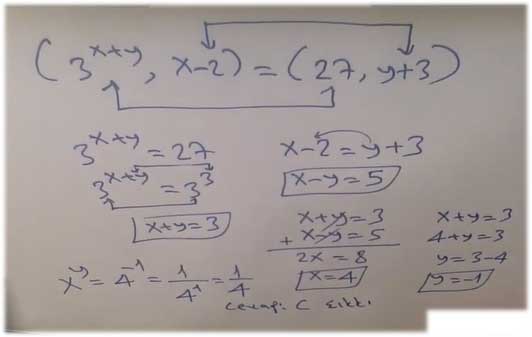 (3^{x+y}, x-2) = (27, y+3)
3^{x+y} = 27
3^{x+y} = 3^3
x+y=3
x-2=y+3
x-y=5
x+y=3
+ x-y=5
2x = 8
x=4
x+y=3
4+y=3
y=3-4
y=-1
x^y = 4^{-1} = \frac{1}{4^1} = \frac{1}{4}
cevap: C şıkkı